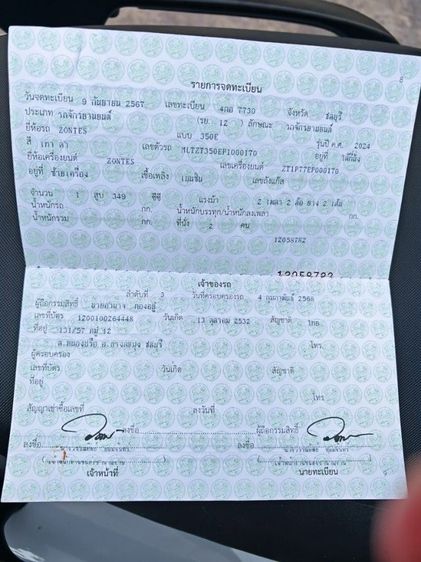 รายการจดทะเบียน
วันจดทะเบียน 9 กันยายน 2567 เลขทะเบียน 4กอ 7730 จังหวัด ชลบุรี
ประเภท รถจักรยานยนต์ (รย. 12 ) ลักษณะ รถจักรยานยนต์
ยี่ห้อรถ ZONTES แบบ 350E รุ่นปี ค.ศ. 2024
สี เทา ดำ เลขตัวรถ MLTZT350EP1000170 อยู่ที่
ยี่ห้อเครื่องยนต์ ZONTES เลขเครื่องยนต์ ZT1P77EP000170
อยู่ที่ ซ้ายเครื่อง เชื้อเพลิง เบนซิน เลขถังแก๊ส
จำนวน 1 สูบ 349 ซีซี แรงม้า 2 เพลา 2 ล้อ ยาง 2 เส้น
น้ำหนักรถ กก. น้ำหนักบรรทุก/น้ำหนักลงเพลา กก.
น้ำหนักรวม กก. ที่นั่ง 2 คน
12058782
12058782
เจ้าของรถ
ลำดับที่ 3 วันที่ครอบครองรถ 4 กุมภาพันธ์ 2568
ผู้ถือกรรมสิทธิ์
เลขที่บัตร 1200100264448 วันเกิด 13 ตุลาคม 2532 สัญชาติ ไทย
ที่อยู่ 131/57 หมู่ 12
ต.หนองปรือ อ.บางละมุง ชลบุรี โทร.
ผู้ครอบครอง
เลขที่บัตร วันเกิด สัญชาติ
ที่อยู่
โทร
สัญญาเช่าซื้อเลขที่ ลงวันที่
ลงชื่อ ผู้ถือกรรมสิทธิ์
ลงชื่อ ลงชื่อ
เจ้าหน้าที่ นายทะเบียน